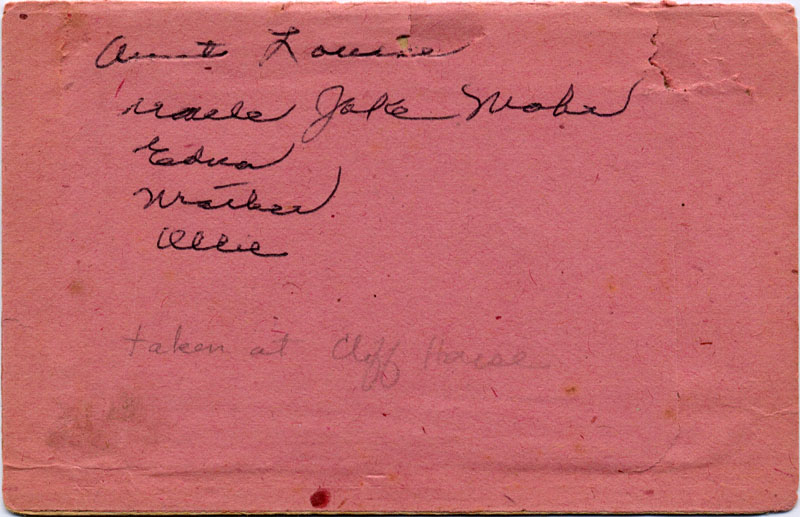 Aunt Louise
Uncle Jake Maher
Edna
Mother
Ollie
taken at Cliff House